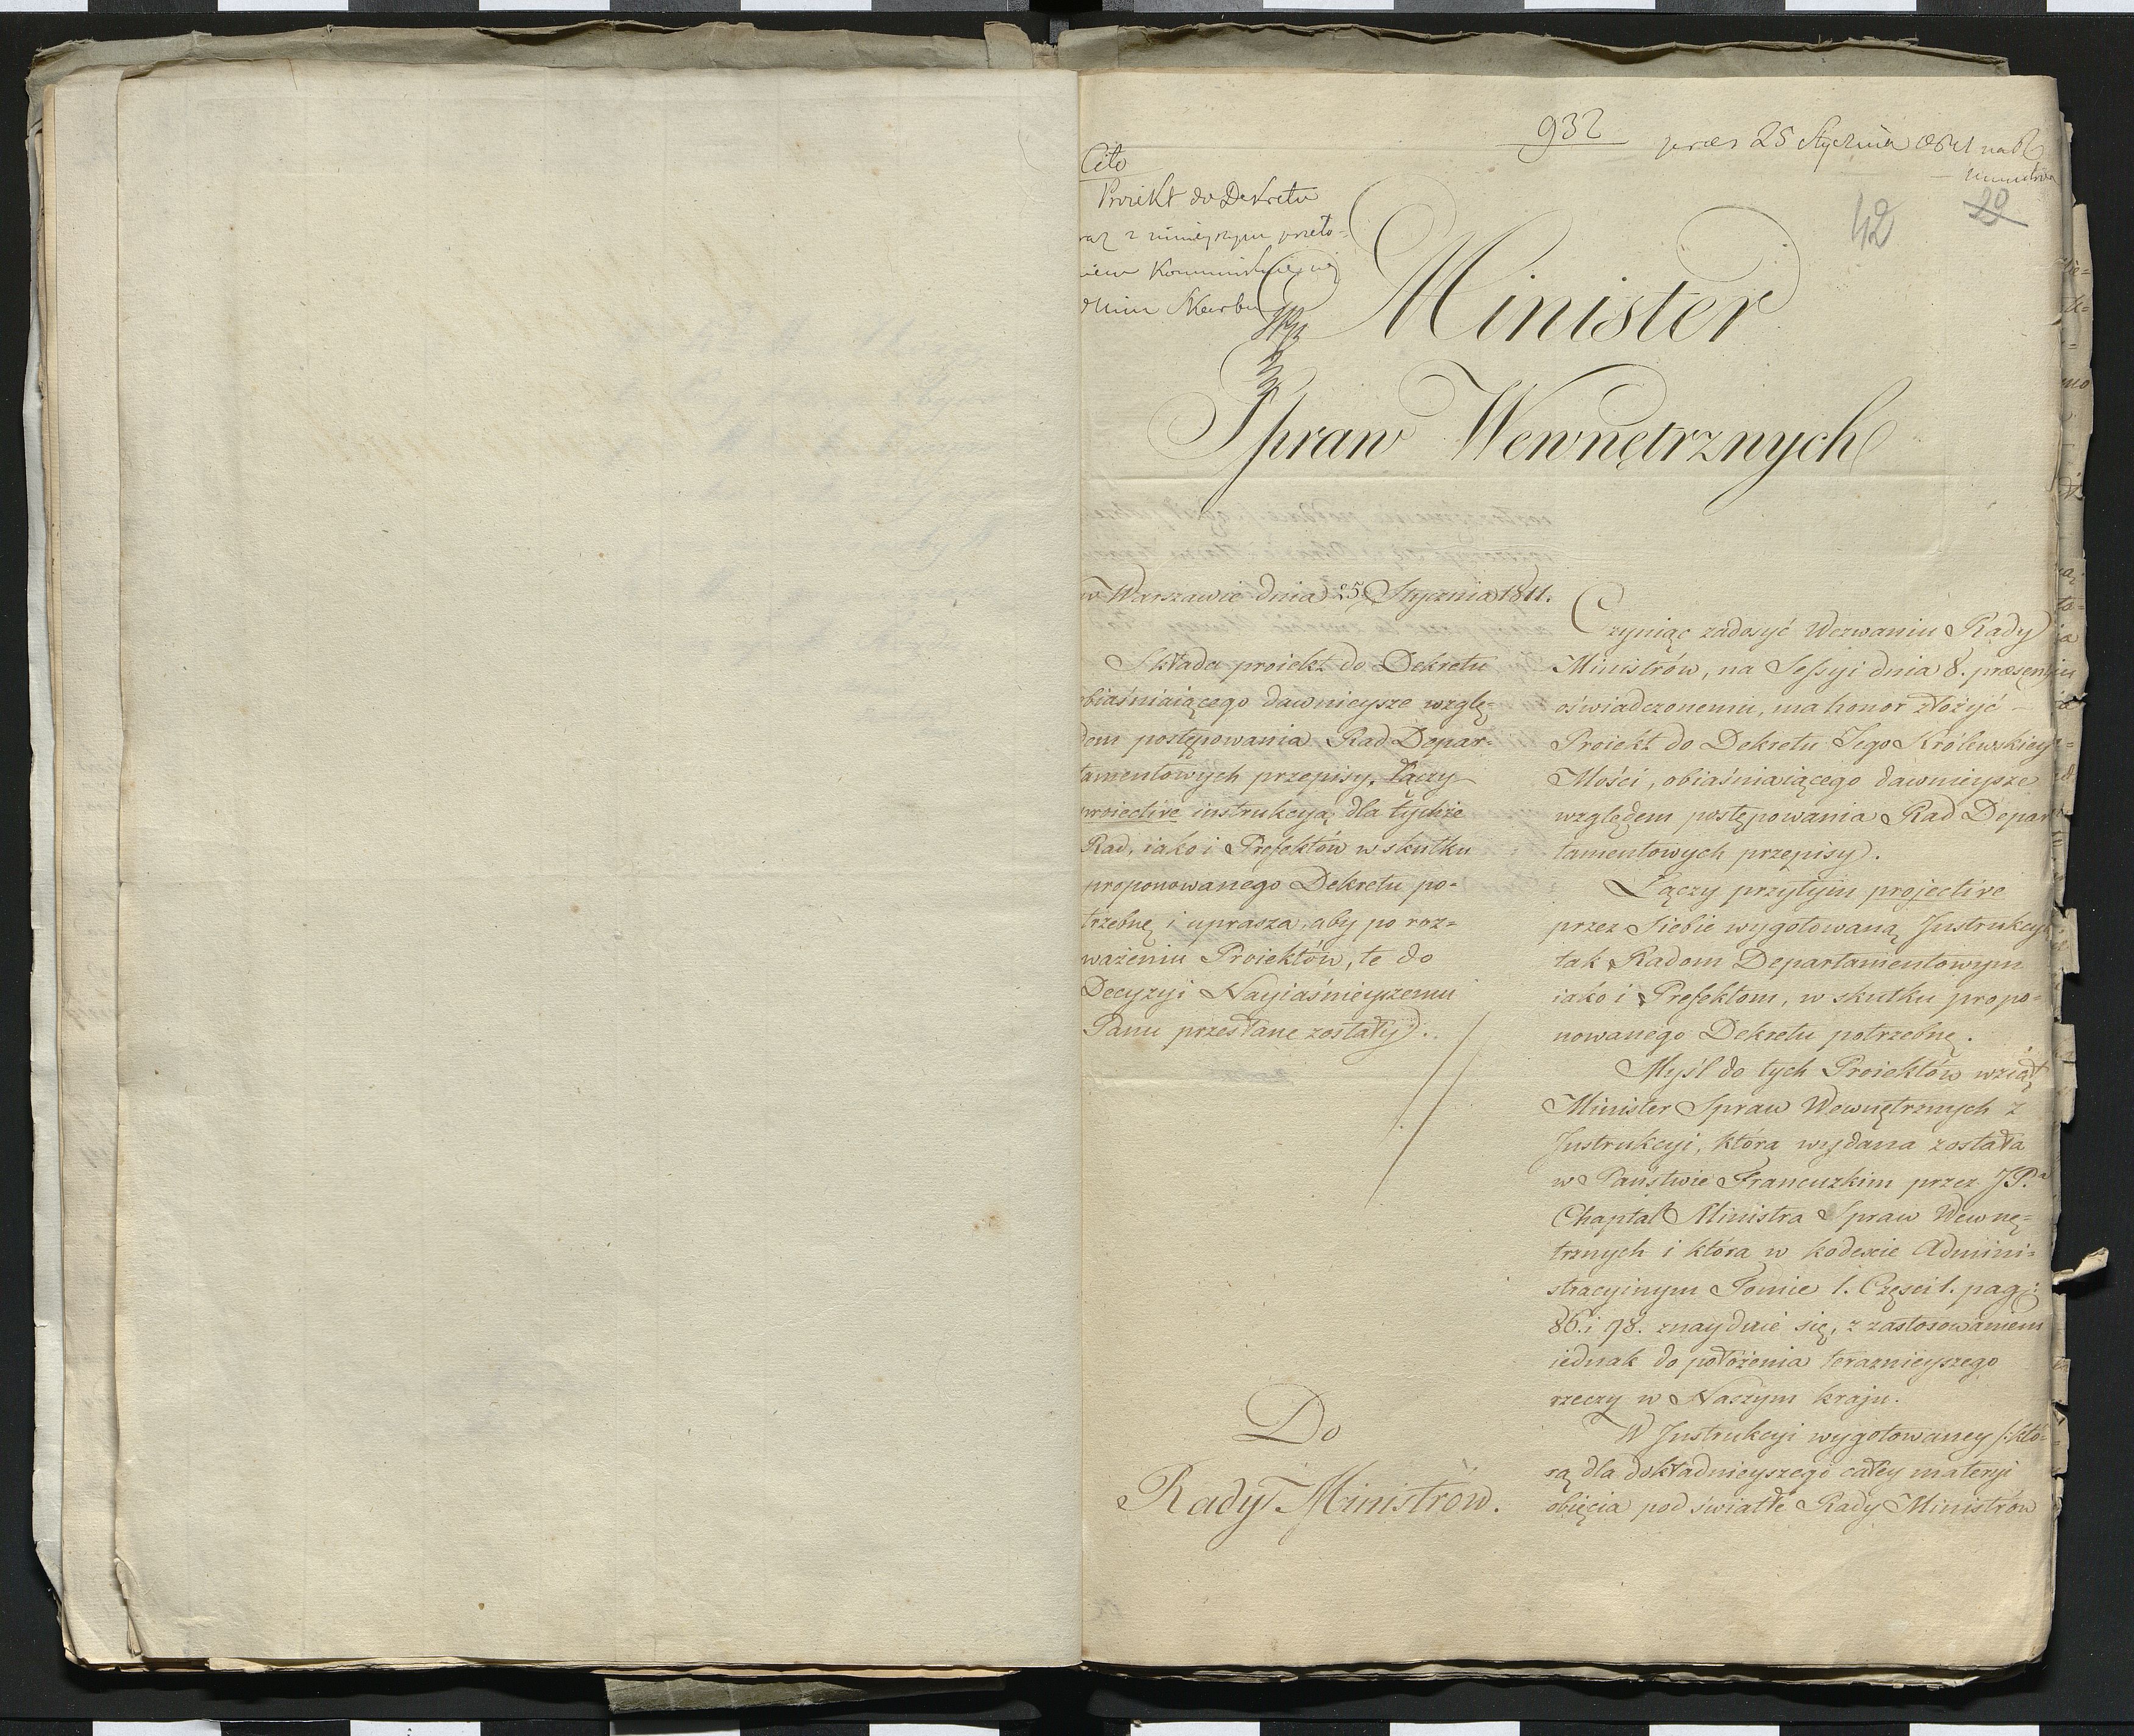 932
pres 25 Stycznia
42
29
Cito
Proiekt do Dekretu
Skarbu
Minister
Spraw Wewnętrznych
w Warszawie dnia 25 Stycznia 1811.
Składa proiekt do Dekretu
obiaśniaiącego dawnieysze wzglę-
dem postępowania Rad Depar-
tamentowych przepisy, łączy
proiective instrukcyą dla tychże
Rad, iako i Prefektów w skutku
proponowanego Dekretu po-
trzebnę i uprasza, aby po roz-
ważeniu Proiektów, te do
Decyzyi Nayiaśnieyszemu
Panu przesłane zostały.
Do
Rady Ministrów.
Czyniąc zadosyć Wezwaniu Rady
Ministrów, na Sessyi dnia 8. præsentis
oświadczonemu, ma honor złożyć
Proiekt do Dekretu Jego Królewskiey
Mości, obiaśniaiącego dawnieysze
względem postępowania Rad Depar
tamentowych przepisy.
Łączy przytym projective
przez Siebie wygotowaną Instrukcyę
tak Radom Departamentowym
iako i Prefektom, w skutku propo-
nowanego Dekretu potrzebnę.
Myśl do tych Proiektów wziął
Minister Spraw Wewnętrznych z
Instrukcyi, która wydana została
w Państwie Francuzkim przez JP.a
Chaptal Ministra Spraw Wewnę-
trznych i która w kodexie Admini-
stracyinym Tomie 1. Części 1. pag:
86. i 98. znayduie się, z zastosowaniem
iednak do położenia teraznieyszego
rzeczy w Naszym kraju.
W Instrukcyi wygotowaney /: któ-
rą dla dokładnieyszego całey materyi
obięcia pod światłe Rady Ministrów